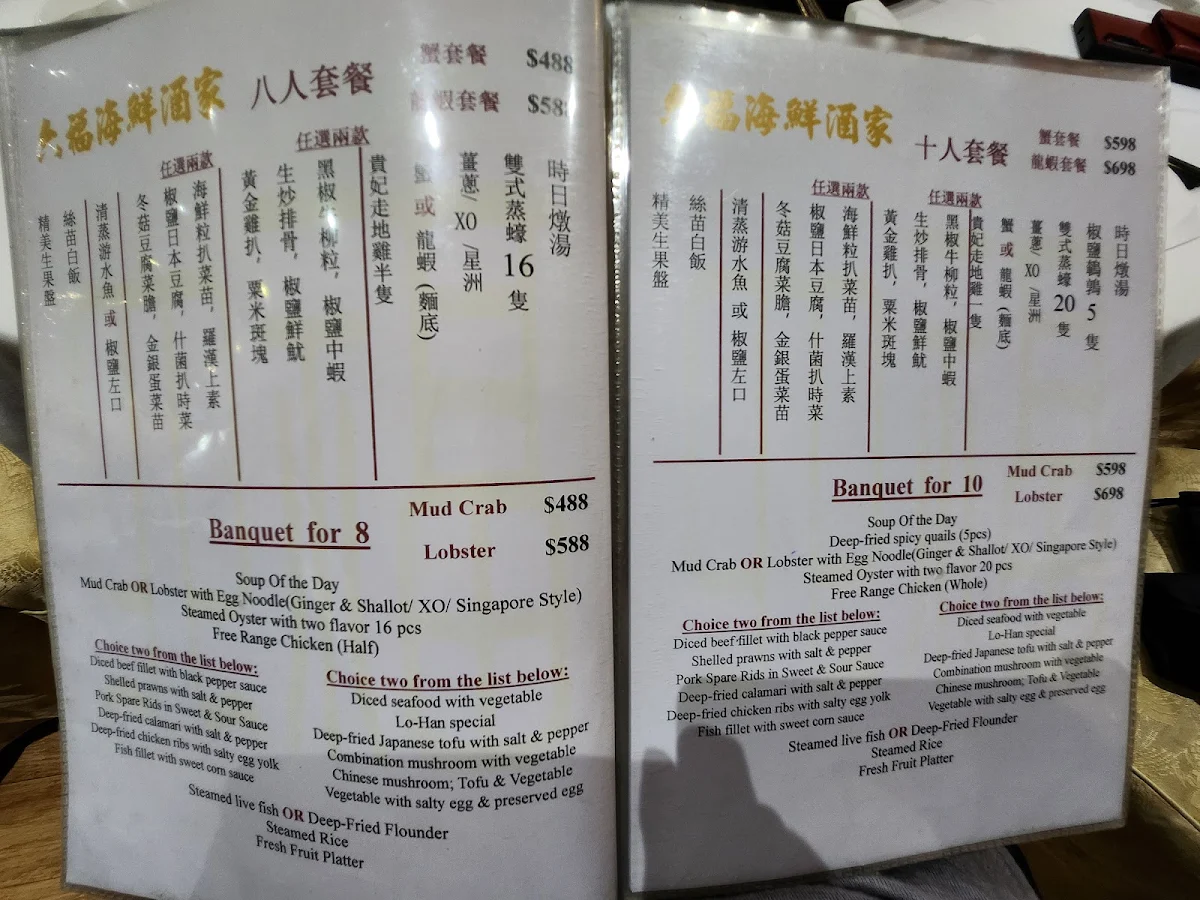 六福海鮮酒家
八人套餐
蟹套餐 $488
龍蝦套餐 $588
時日燉湯
雙式蒸蠔 16 隻
薑蔥/ XO /星洲
蟹 或 龍蝦 (麵底)
貴妃走地雞半隻
任選兩款
黑椒牛柳粒, 椒鹽中蝦
生炒排骨, 椒鹽鮮魷
黃金雞扒, 粟米斑塊
任選兩款
海鮮粒扒菜苗, 羅漢上素
椒鹽日本豆腐, 什菌扒時菜
冬菇豆腐菜膽, 金銀蛋菜苗
清蒸游水魚 或 椒鹽左口
絲苗白飯
精美生果盤
Banquet for 8
Mud Crab $488
Lobster $588
Soup Of the Day
Mud Crab OR Lobster with Egg Noodle(Ginger & Shallot/ XO/ Singapore Style)
Steamed Oyster with two flavor 16 pcs
Free Range Chicken (Half)
Choice two from the list below:
Diced beef fillet with black pepper sauce
Shelled prawns with salt & pepper
Pork Spare Rids in Sweet & Sour Sauce
Deep-fried calamari with salt & pepper
Deep-fried chicken ribs with salty egg yolk
Fish fillet with sweet corn sauce
Choice two from the list below:
Diced seafood with vegetable
Lo-Han special
Deep-fried Japanese tofu with salt & pepper
Combination mushroom with vegetable
Chinese mushroom; Tofu & Vegetable
Vegetable with salty egg & preserved egg
Steamed live fish OR Deep-Fried Flounder
Steamed Rice
Fresh Fruit Platter
六福海鮮酒家
十人套餐
蟹套餐 $598
龍蝦套餐 $698
時日燉湯
椒鹽鵪鶉 5 隻
雙式蒸蠔 20 隻
薑蔥/ XO /星洲
蟹 或 龍蝦 (麵底)
貴妃走地雞一隻
任選兩款
黑椒牛柳粒, 椒鹽中蝦
生炒排骨, 椒鹽鮮魷
黃金雞扒, 粟米斑塊
任選兩款
海鮮粒扒菜苗, 羅漢上素
椒鹽日本豆腐, 什菌扒時菜
冬菇豆腐菜膽, 金銀蛋菜苗
清蒸游水魚 或 椒鹽左口
絲苗白飯
精美生果盤
Banquet for 10
Mud Crab $598
Lobster $698
Soup Of the Day
Deep-fried spicy quails (5pcs)
Mud Crab OR Lobster with Egg Noodle(Ginger & Shallot/ XO/ Singapore Style)
Steamed Oyster with two flavor 20 pcs
Free Range Chicken (Whole)
Choice two from the list below:
Diced beef fillet with black pepper sauce
Shelled prawns with salt & pepper
Pork Spare Rids in Sweet & Sour Sauce
Deep-fried calamari with salt & pepper
Deep-fried chicken ribs with salty egg yolk
Fish fillet with sweet corn sauce
Choice two from the list below:
Diced seafood with vegetable
Lo-Han special
Deep-fried Japanese tofu with salt & pepper
Combination mushroom with vegetable
Chinese mushroom; Tofu & Vegetable
Vegetable with salty egg & preserved egg
Steamed live fish OR Deep-Fried Flounder
Steamed Rice
Fresh Fruit Platter